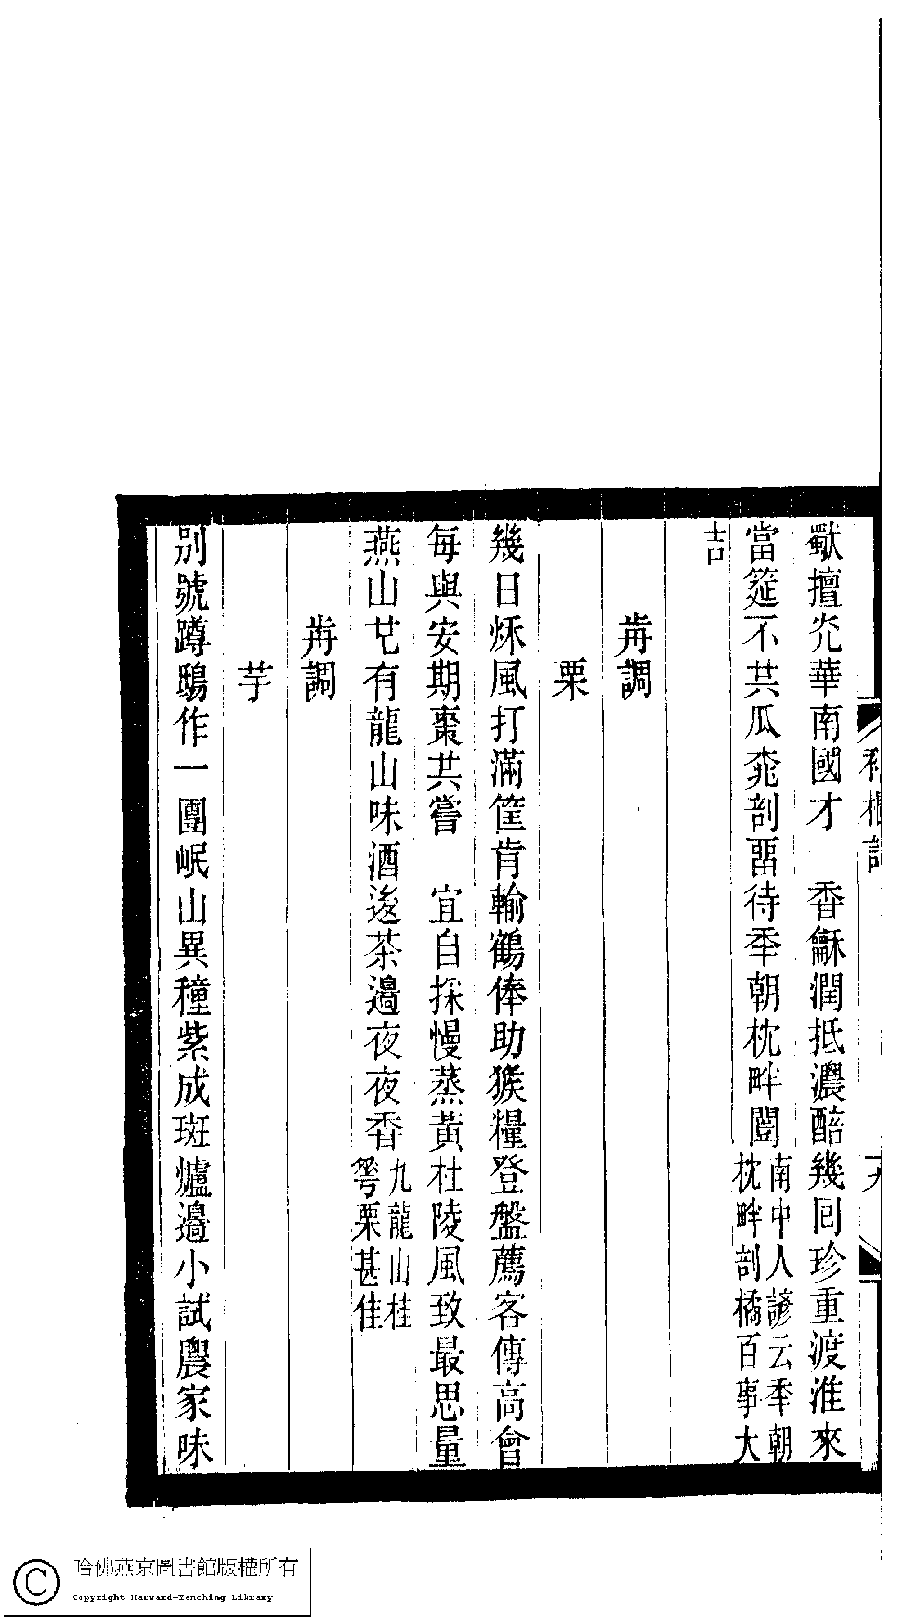 獻擅光華南國才　香龢潤抵濃醅幾回珍重渡淮來
當筵不共瓜桃剖畱待秊朝枕畔闓南中人諺云秊朝
枕畔剖橘百事大
吉
歬調
栗
幾日秌風打滿筐肯輸鶴俸助猴糧登盤薦客傳高會
每與安期棗共嘗　宜自採慢蒸黃杜陵風致最思量
燕山芤有龍山味酒後茶邊夜夜香九龍山桂
花栗甚佳
歬調
芋
別號蹲鴟作一團岷山異種紫成斑爐邊小試農家味
哈佛燕京圖書館版權所有
Copyright Harvard-Yenching Library